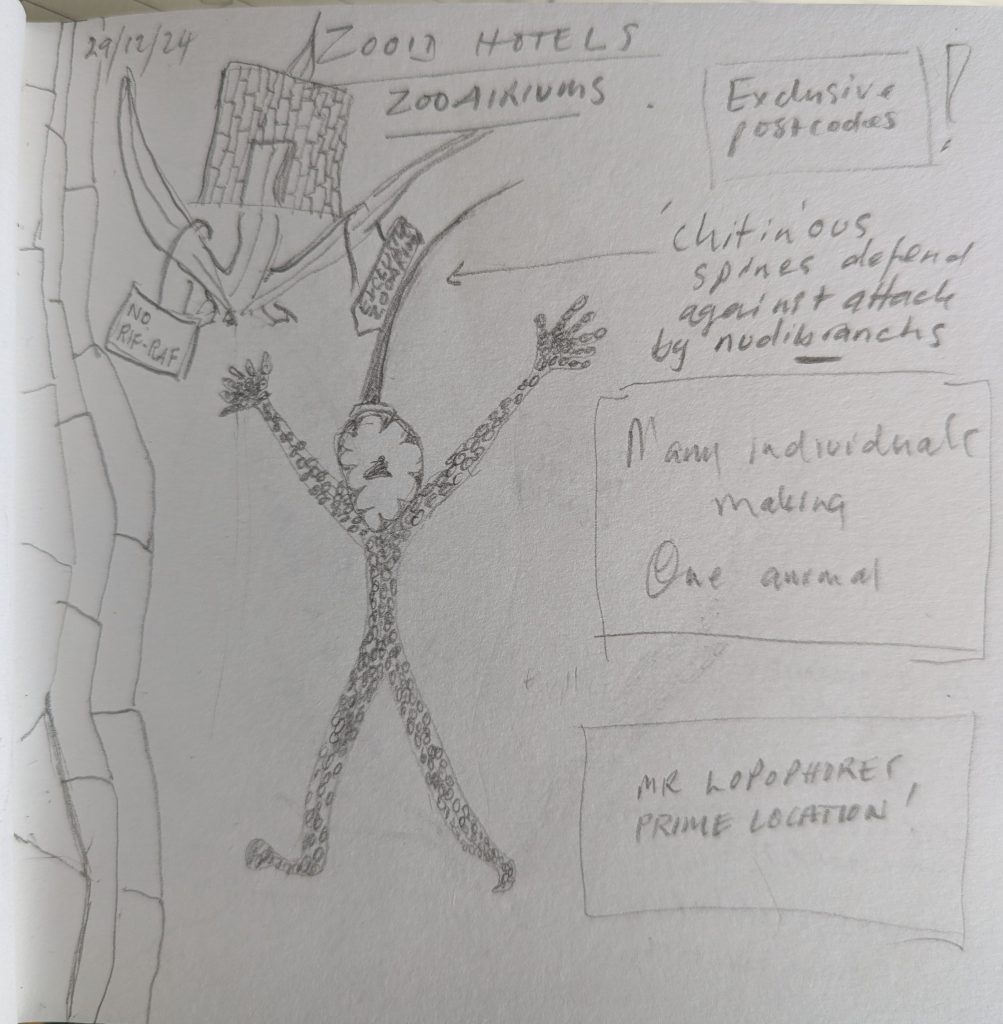 29/12/24
ZOOID HOTELS
ZOOAIRIUMS.
Exclusive
postcodes
!
'chitin'ous
spines defend
against attack
by nudibranchs
NO
RIF-RAF
EXCLUSIVE
Many individuals
making
One animal
MR LOPOPHORES,
PRIME LOCATION!